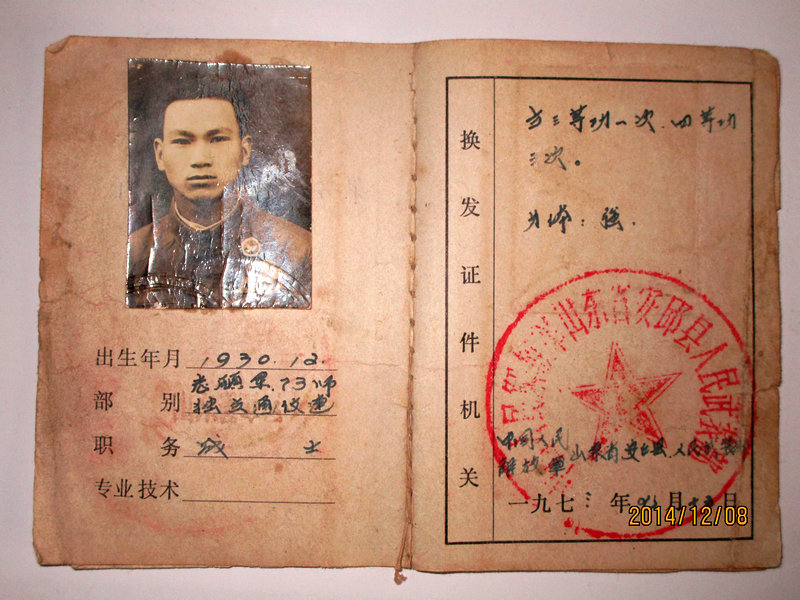 出生年月 1930.12.
部别 志愿军.73师
独立通讯连
职务 战士
专业技术
换发证件机关
立三等功一次.四等功
三次。
中国人民
解放军山东省安丘县人民武装部
一九七三年 月 日
山东省安邱县人民武装部
2014/12/08